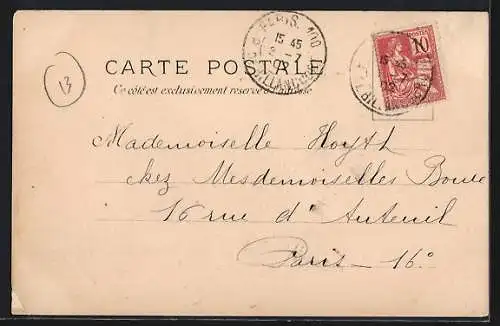 13
PARIS. 100
15 45
CARTE POSTALE
Ce côté est exclusivement réservé à l'adresse
POSTES
10
15 45
Mademoiselle Hoyth
chez Mesdemoiselles Boule
16 rue d'Auteuil
Paris 16e